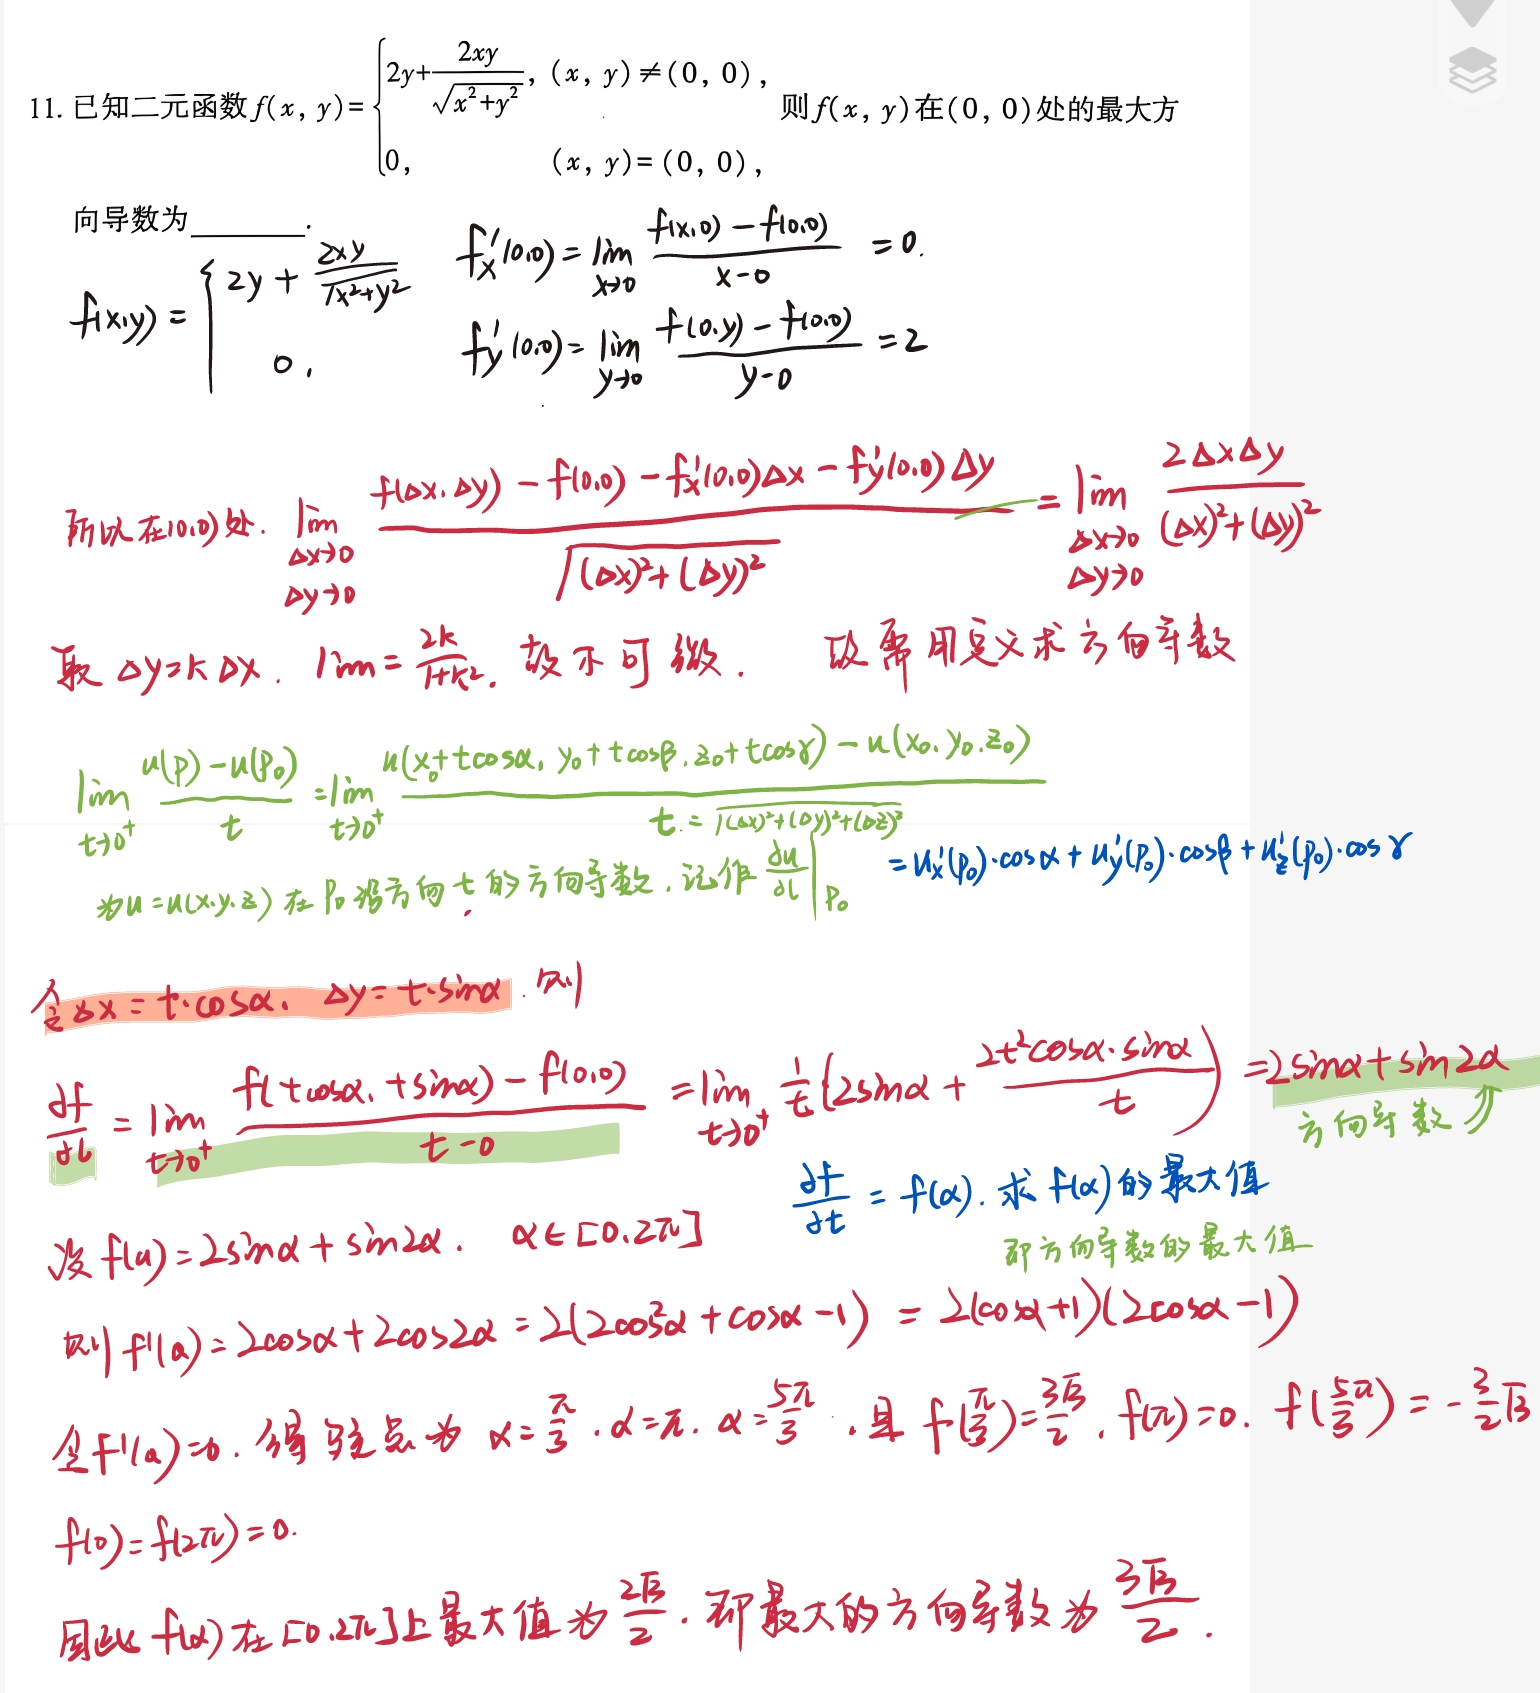 11. 已知二元函数 f(x, y)= { 2y+ 2xy/√(x²+y²), (x, y)≠(0, 0), 则 f(x, y) 在(0, 0)处的最大方
0, (x, y)=(0, 0),
向导数为______.
f(x,y) = { 2y + 2xy/√(x²+y²)
0,
f'x(0,0) = lim x→0 (f(x,0) - f(0,0))/(x-0) = 0.
f'y(0,0) = lim y→0 (f(0,y) - f(0,0))/(y-0) = 2
所以在(0,0)处. lim Δx→0 Δy→0 (f(Δx,Δy) - f(0,0) - f'x(0,0)Δx - f'y(0,0)Δy)/√((Δx)²+(Δy)²) = lim Δx→0 Δy→0 2ΔxΔy/((Δx)²+(Δy)²)
取 Δy=kΔx. lim = 2k/(1+k²). 故不可微. 故需用定义求方向导数
lim t→0⁺ (u(P)-u(P₀))/t = lim t→0⁺ (u(x₀+tcosα, y₀+tcosβ, z₀+tcosγ) - u(x₀,y₀,z₀))/t = √((Δx)²+(Δy)²+(Δz)²)
= u'x(P₀)·cosα + u'y(P₀)·cosβ + u'z(P₀)·cosγ
为u=u(x,y,z) 在P₀沿方向t的方向导数,记作 ∂u/∂l |P₀
令Δx = t·cosα, Δy = t·sinα. 则
∂f/∂l = lim t→0⁺ (f(tcosα, tsinα) - f(0,0))/(t-0) = lim t→0⁺ 1/t (2sinα + 2t²cosα·sinα/t) = 2sinα + sin2α
方向导数
∂f/∂t = f(α). 求f(α)的最大值
即方向导数的最大值
设 f(α) = 2sinα + sin2α. α∈[0,2π]
则 f'(α) = 2cosα + 2cos2α = 2(2cos²α + cosα - 1) = 2(cosα+1)(2cosα-1)
令f'(α)=0. 得驻点为 α=π/3, α=π, α=5π/3, 且 f(π/3)=3√3/2, f(π)=0. f(5π/3) = -3/2√3
f(0) = f(2π) = 0.
因此 f(α) 在 [0,2π] 上最大值为 2√3/2. 即最大的方向导数为 3√3/2.